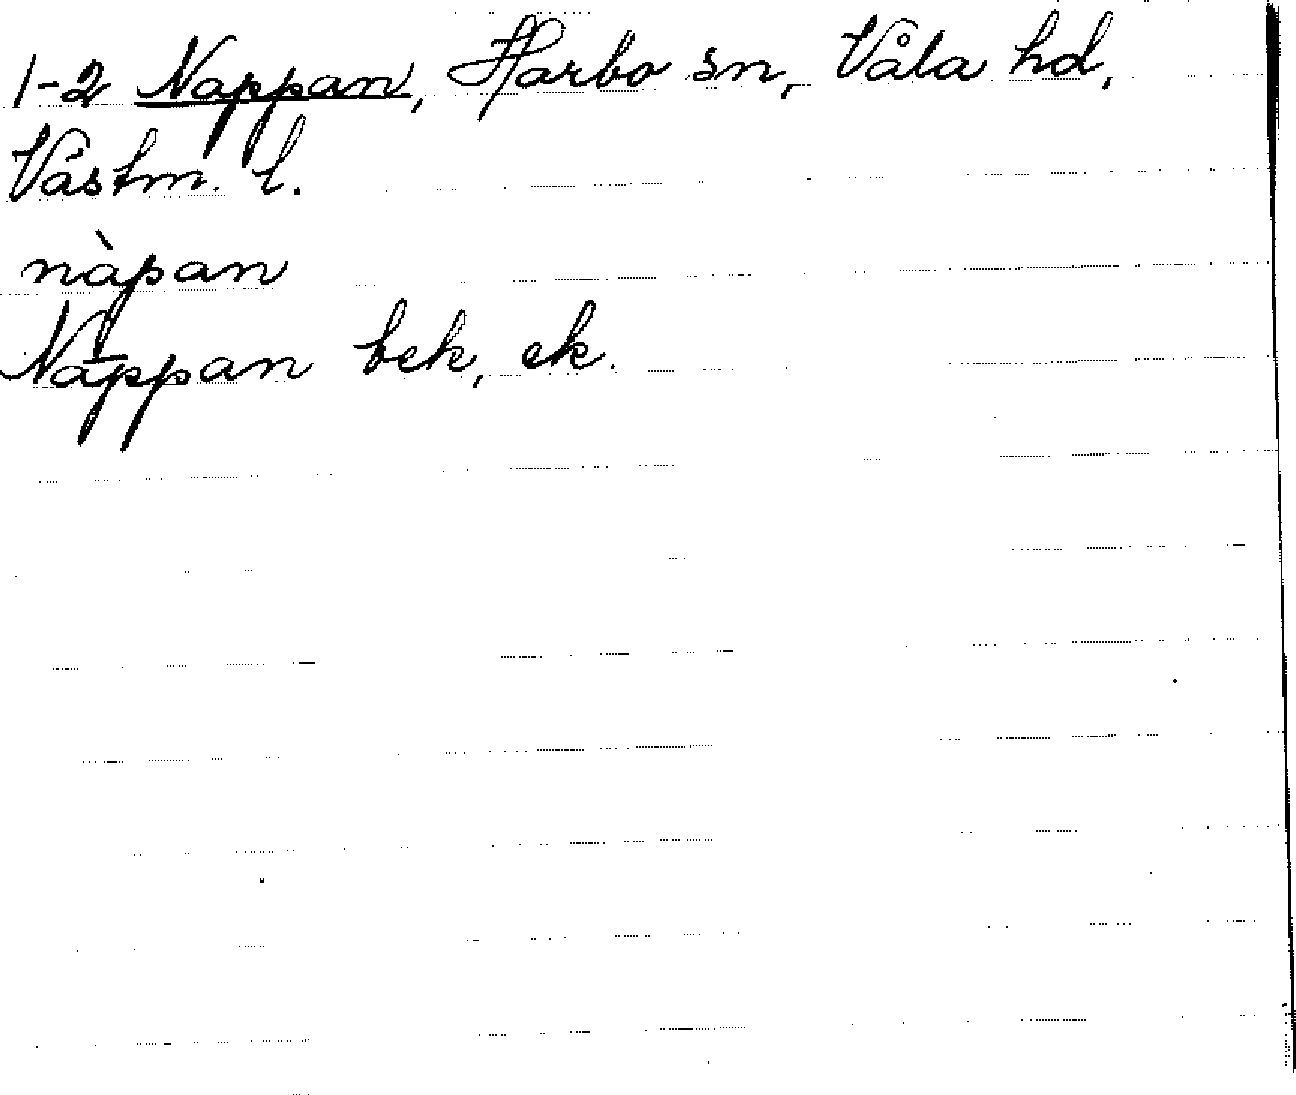 1-2 Nappan, Harbo sn, Våla hd,
Västm. l.
nàpan
Nappan bek, ek.